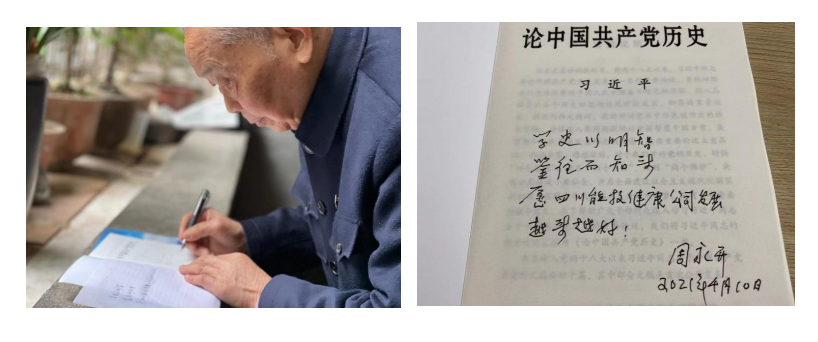 论中国共产党历史
习近平
学史以明智
鉴往而知来
愿四川能投健康公司发展
越来越好！
周永开
2021年4月10日